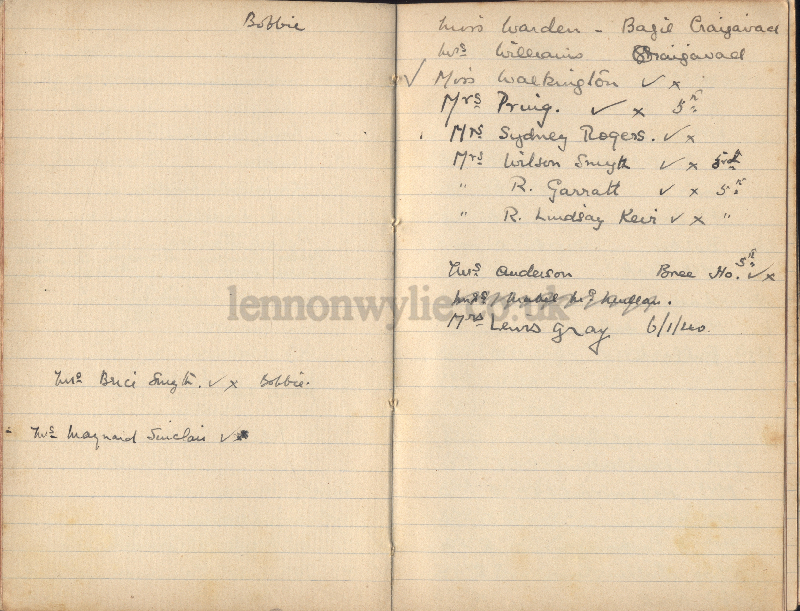 Bobbie
Mrs Brice Smyth. ✓ x Bobbie.
Mrs Maynard Sinclair ✓ x
Miss Warden - Bazil Craigavad
Mrs Williams Craigavad
✓ Miss Walkington ✓ x
Mrs Pring. ✓ x 5th
Mrs Sydney Rogers. ✓ x
Mrs Wilson Smyth ✓ x
" R. Garratt ✓ x 5th
" R. Lindsay Keir ✓ x "
Mrs Anderson Bree Ho. 5th ✓ x
Mrs Lewis Gray 6/1/40.
lennonwylie.co.uk